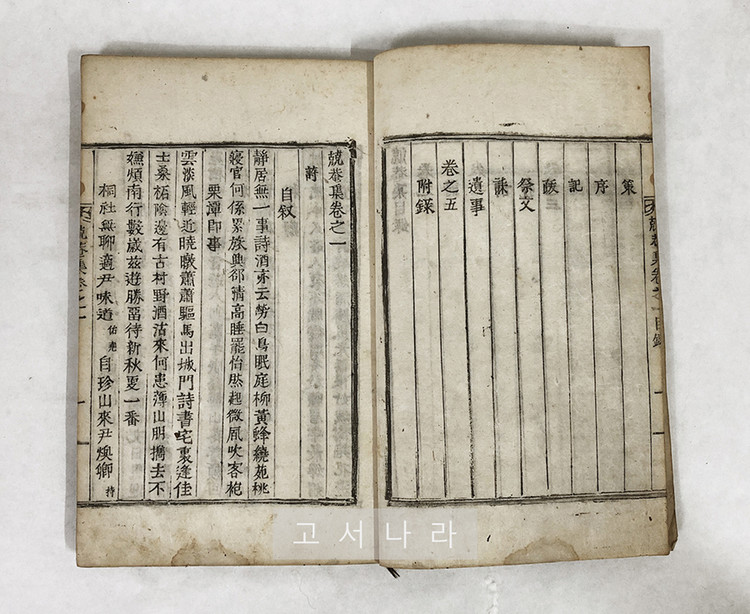 策
序
記
跋
祭文
誄
遺事
卷之五
附錄
兢菴集卷之一目錄
兢菴集卷之一
詩
自叙
靜居無一事詩酒亦云勞白鳥眠庭柳黃蜂繞苑桃
寢官何係累族興卻清高睡罷怡然起微風吹客袍
栗潭卽事
雲淡風輕近曉暾蕭蕭驅馬出城門詩書宅裏逢佳
士桑柘陰邊有古村野酒沽來何患薄山朋携去不
嫌煩南行數歲玆遊勝留待新秋更一番
桐社無聊適尹味道 自珍山來尹煥卿
兢菴集卷之一
고서나라